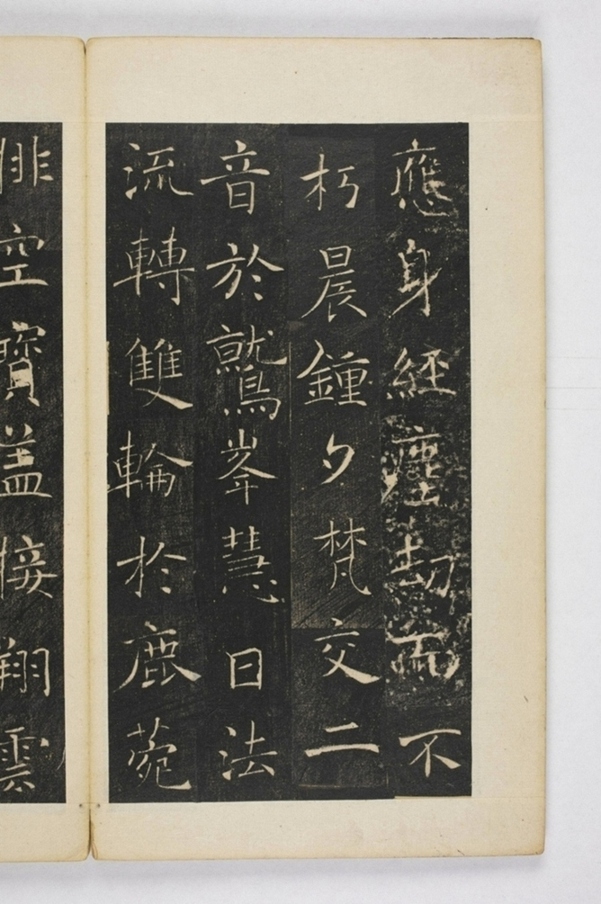 應身經塵劫而不
朽晨鍾夕梵交二
音於鷲峯慧日法
流轉雙輪於鹿菀
排空寶盖接翔雲